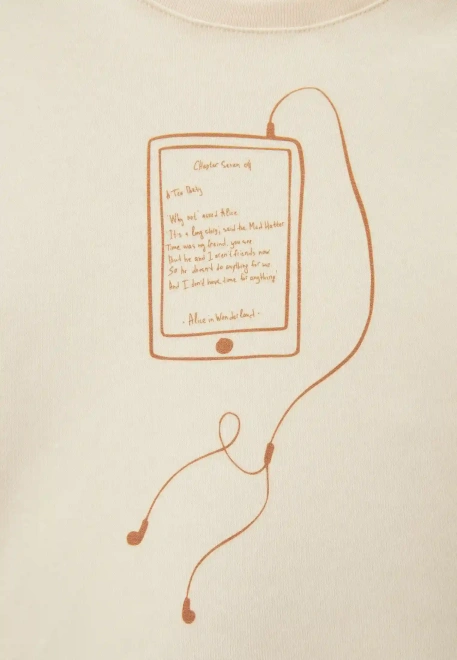 Chapter Seven of
A Tea Party
'Why not' asked Alice
'It's a long story', said the Mad Hatter
Time was my freind, you see
But he and I aren't friends now
So he doesn't do anything for me
And I don't have time for anything'
- Alice in Wonderland -